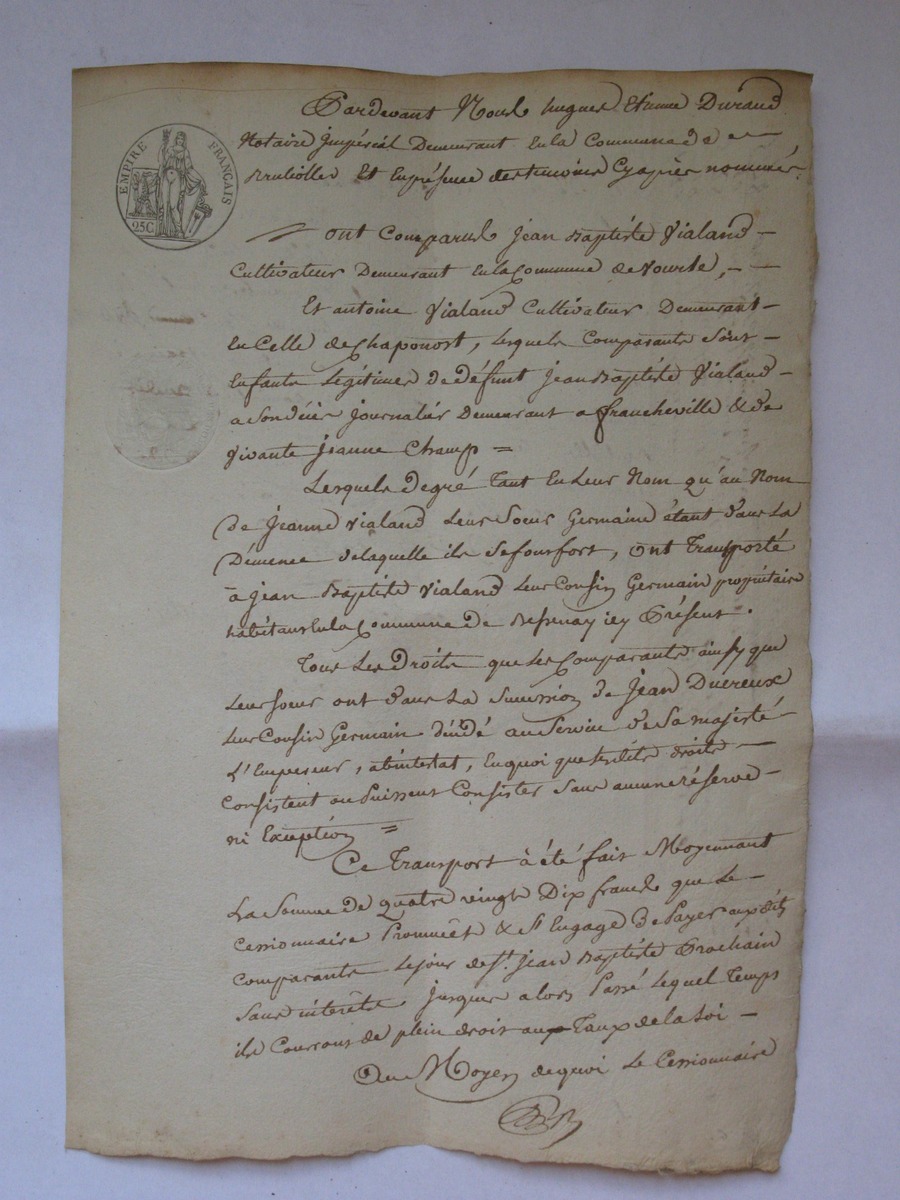 EMPIRE FRANÇAIS
25C
Pardevant Nous hugues Etienne Durand
Notaire Impérial Demeurant En la Commune de
Brulliolles Et En présence des temoins Cyaprès nommés
ont Comparus Jean Baptiste Vialand
Cultivateur Demeurant En la Commune de Vourle,
Et antoine Vialand Cultivateur Demeurant
En Celle de Chaponost, lesquels Comparants Sont
Enfants légitimes de défunt Jean Baptiste Vialand
a Son décès Journalier Demeurant a francheville & de
Vivante Jeanne Champ =
Lesquels de gré Tant En Leur Nom qu'au Nom
de Jeanne Vialand Leur Soeur Germaine étant dans La
Démence de laquelle ils Se font fort, ont Transporté
à Jean Baptiste Vialand Leur Cousin Germain propriétaire
habitant En la Commune de Bessenay icy Présent.
Tous Les Droits que Les Comparants ainsy que
Leur Soeur ont dans La Succession de Jean Ducreux
Leur Cousin Germain décédé au Service de Sa majesté
L'Empereur, abintestat, En quoi que lesdits droits
Consistent ou Puissent Consister Sans aucune réserve
ni Exception =
Ce Transport à été fait Moyennant
La Somme de quatre vingt Dix francs que Le
Cessionnaire Promet & S'Engage de Payer auxdits
Comparants Le jour de St Jean Baptiste Prochain
Sans intérêts Jusques alors Passé Lequel Temps
ils Courront de plein droit aux Taux de la Loi
Au Moyen de quoi Le Cessionnaire